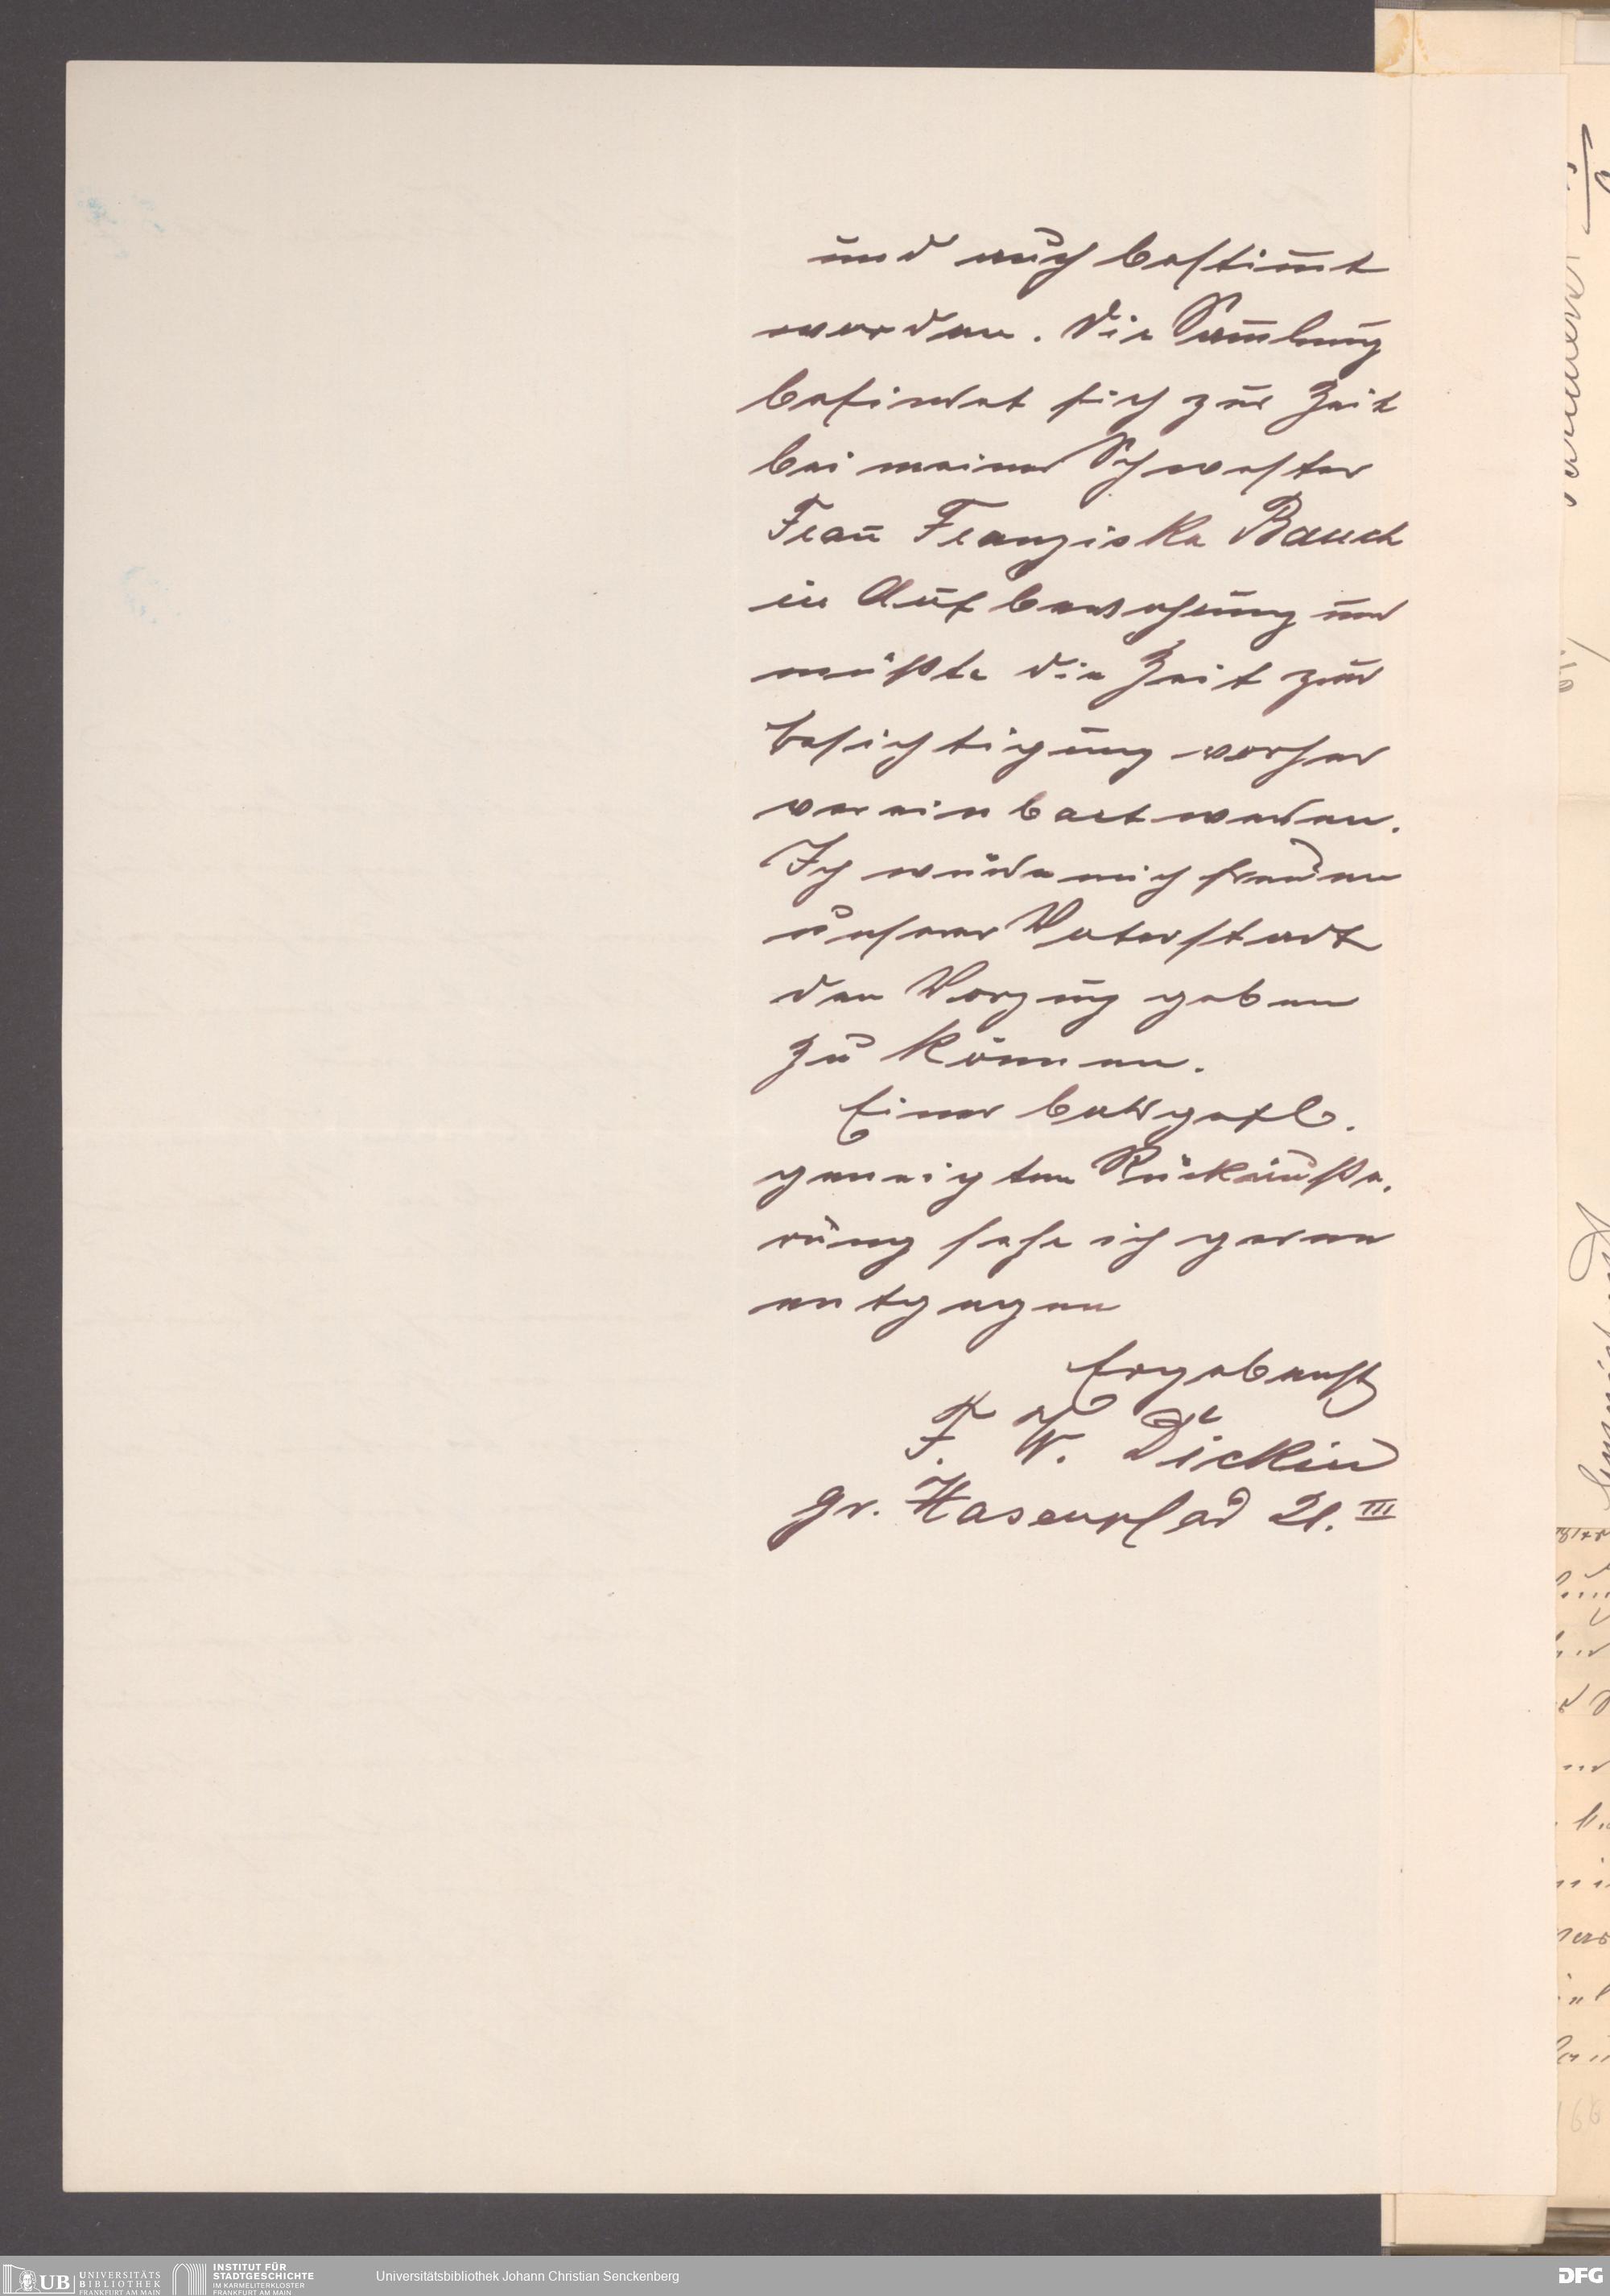 und auch bestim̅t
worden. Die Sam̅lung
befindet sich zur Zeit
bei meiner Schwester
Frau Franziska Bauch
in Aufbewahrung und
müßte die Zeit zur
Besichtigung vorher
vereinbart werden.
Ich würde mich freuen
unserer Vaterstadt
den Vorzug geben
zu können.
Einer baldgefl.
geneigten Rückäuße-
rung sehe ich gerne
entgegen
Ergebenst
F. W.
gr. Hasenpfad 21. III
UB UNIVERSITÄTS
BIBLIOTHEK
FRANKFURT AM MAIN
INSTITUT FÜR
STADTGESCHICHTE
IM KARMELITERKLOSTER
FRANKFURT AM MAIN
Universitätsbibliothek Johann Christian Senckenberg
DFG